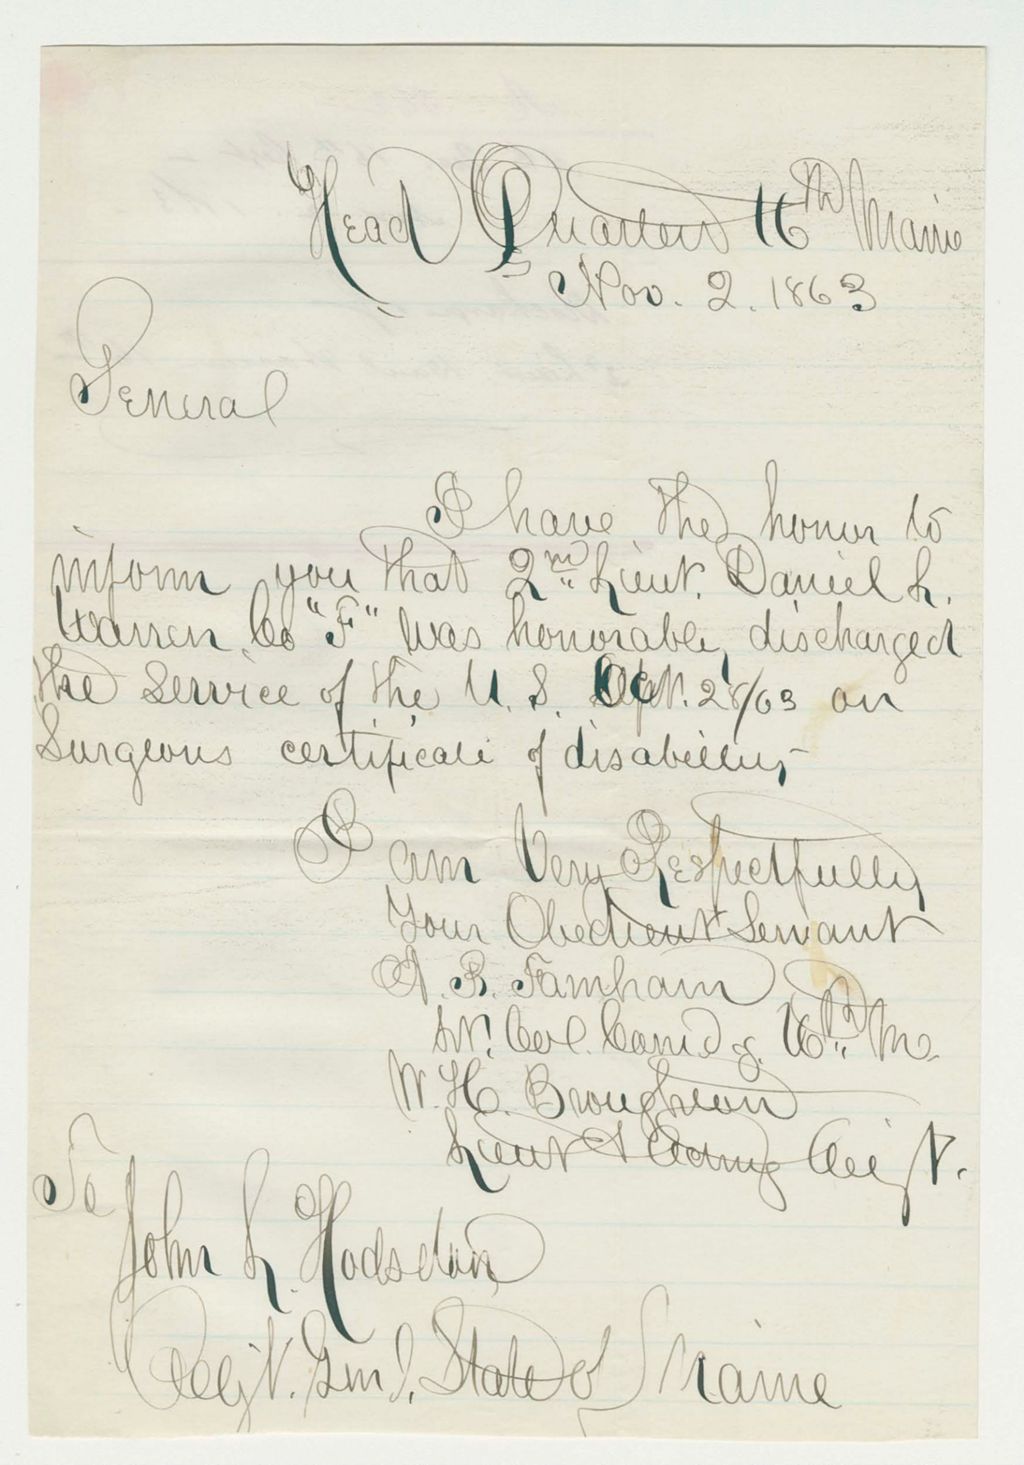 Head Quarters 16th Maine
Nov. 2. 1863
General
I have the honor to
inform you that 2nd Lieut. Daniel L.
Warren Co "F" was honorably discharged
the service of the U. S. 28/63 on
Surgeons certificate of disability
I am Very Respectfully
Your Obedient Servant
A. B. Farnham
Lt. Col. Comdg. 16th Me.
W. H. Broughton
Lieut & Acting Adjt.
To
John L. Hodsdon
Adjt. Genl. State of Maine